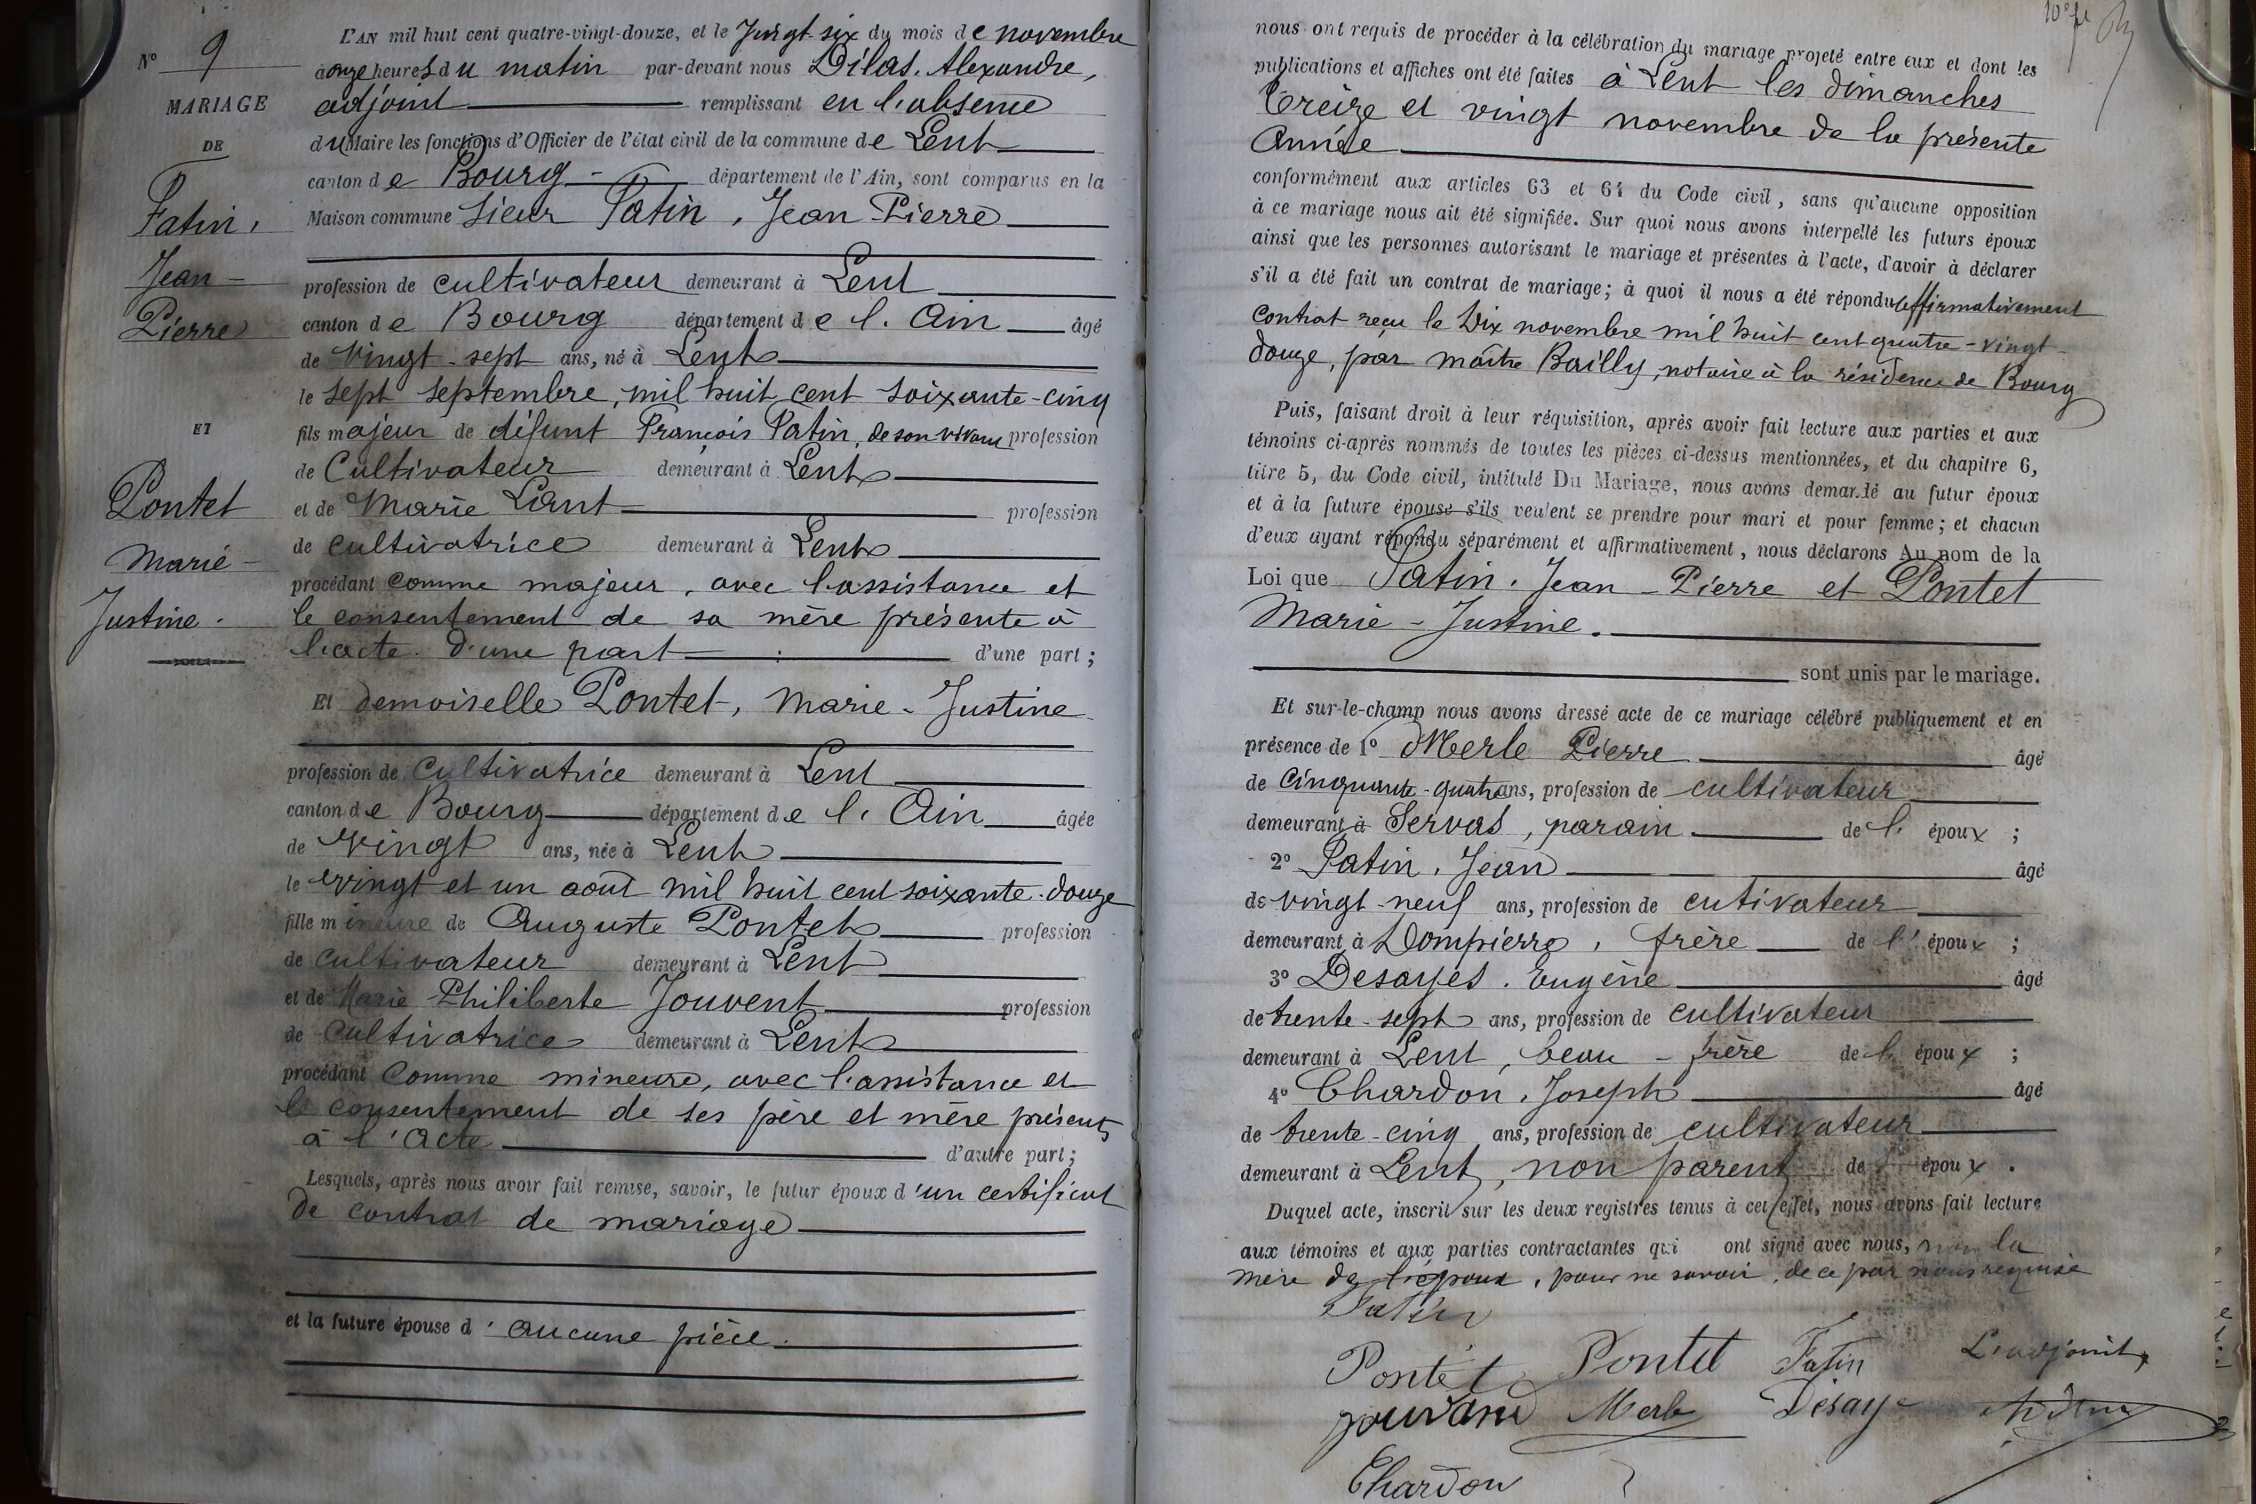 N° 9
MARIAGE
DE
Fatin,
Jean -
Pierre
ET
Pontet
Marie -
Justine.
L'AN mil huit cent quatre-vingt-douze, et le Vingt-six du mois de novembre
à onze heures du matin par-devant nous Dilas. Alexandre,
adjoint remplissant en l'absence
du Maire les fonctions d'Officier de l'état civil de la commune de Lent
canton de Bourg - département de l'Ain, sont comparus en la
Maison commune Sieur Fatin, Jean-Pierre
profession de cultivateur demeurant à Lent
canton de Bourg département de l'Ain âgé
de vingt-sept ans, né à Lent
le sept septembre, mil huit cent soixante-cinq
fils majeur de défunt François Fatin, de son vivant profession
de Cultivateur demeurant à Lent
et de Marie profession
de cultivatrice demeurant à Lent
procédant comme majeur, avec l'assistance et
le consentement de sa mère présente à
l'acte. d'une part d'une part ;
Et demoiselle Pontet, Marie-Justine
profession de Cultivatrice demeurant à Lent
canton de Bourg département de l'Ain âgée
de vingt ans, née à Lent
le vingt et un août mil huit cent soixante-douze
fille mineure de Auguste Pontet profession
de cultivateur demeurant à Lent
et de Marie Philiberte Jouvent profession
de cultivatrice demeurant à Lent
procédant comme mineure, avec l'assistance et
le consentement de ses père et mère présents
à l'acte d'autre part ;
Lesquels, après nous avoir fait remise, savoir, le futur époux d'un certificat
de contrat de mariage
et la future épouse d'aucune pièce.
nous ont requis de procéder à la célébration du mariage projeté entre eux et dont les
publications et affiches ont été faites à Lent les dimanches
treize et vingt novembre de la présente
Année
conformément aux articles 63 et 64 du Code civil, sans qu'aucune opposition
à ce mariage nous ait été signifiée. Sur quoi nous avons interpellé les futurs époux
ainsi que les personnes autorisant le mariage et présentes à l'acte, d'avoir à déclarer
s'il a été fait un contrat de mariage; à quoi il nous a été répondu affirmativement
contrat reçu le Dix novembre mil huit cent quatre-vingt-
douze, par maître Bailly, notaire à la résidence de Bourg
Puis, faisant droit à leur réquisition, après avoir fait lecture aux parties et aux
témoins ci-après nommés de toutes les pièces ci-dessus mentionnées, et du chapitre 6,
titre 5, du Code civil, intitulé Du Mariage, nous avons demandé au futur époux
et à la future épouse s'ils veulent se prendre pour mari et pour femme ; et chacun
d'eux ayant répondu séparément et affirmativement, nous déclarons Au nom de la
Loi que Fatin. Jean-Pierre et Pontet
Marie-Justine.
sont unis par le mariage.
Et sur-le-champ nous avons dressé acte de ce mariage célébré publiquement et en
présence de 1° Merle Pierre âgé
de cinquante-quatre ans, profession de cultivateur
demeurant à Servas, parain de l'époux ;
2° Fatin. Jean âgé
de vingt-neuf ans, profession de cutivateur
demeurant à Dompierre, frère de l'époux ;
3° Desayes. Eugène âgé
de trente-sept ans, profession de cultivateur
demeurant à Lent, beau-frère de l'époux ;
4° Chardon, Joseph âgé
de trente-cinq ans, profession de cultivateur
demeurant à Lent, non parent de époux.
Duquel acte, inscrit sur les deux registres tenus à cet effet, nous avons fait lecture
aux témoins et aux parties contractantes qui ont signé avec nous, non la
mère de l'époux, pour ne savoir, de ce par nous requise
Fatin
Pontet Pontet Fatin L'adjoint,
Merle Desaye
Chardon